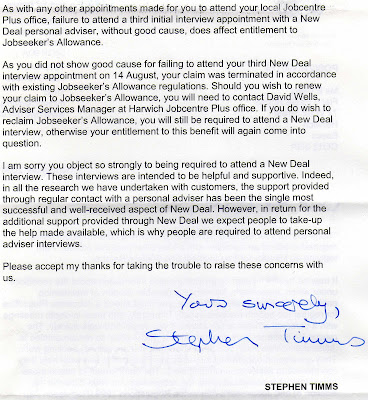 As with any other appointments made for you to attend your local Jobcentre
Plus office, failure to attend a third initial interview appointment with a New
Deal personal adviser, without good cause, does affect entitlement to
Jobseeker's Allowance.
As you did not show good cause for failing to attend your third New Deal
interview appointment on 14 August, your claim was terminated in accordance
with existing Jobseeker's Allowance regulations. Should you wish to renew
your claim to Jobseeker's Allowance, you will need to contact David Wells,
Adviser Services Manager at Harwich Jobcentre Plus office. If you do wish to
reclaim Jobseeker's Allowance, you will still be required to attend a New Deal
interview, otherwise your entitlement to this benefit will again come into
question.
I am sorry you object so strongly to being required to attend a New Deal
interview. These interviews are intended to be helpful and supportive. Indeed,
in all the research we have undertaken with customers, the support provided
through regular contact with a personal adviser has been the single most
successful and well-received aspect of New Deal. However, in return for the
additional support provided through New Deal we expect people to take-up
the help made available, which is why people are required to attend personal
adviser interviews.
Please accept my thanks for taking the trouble to raise these concerns with
us.
Yours sincerely,
Stephen Timms
STEPHEN TIMMS